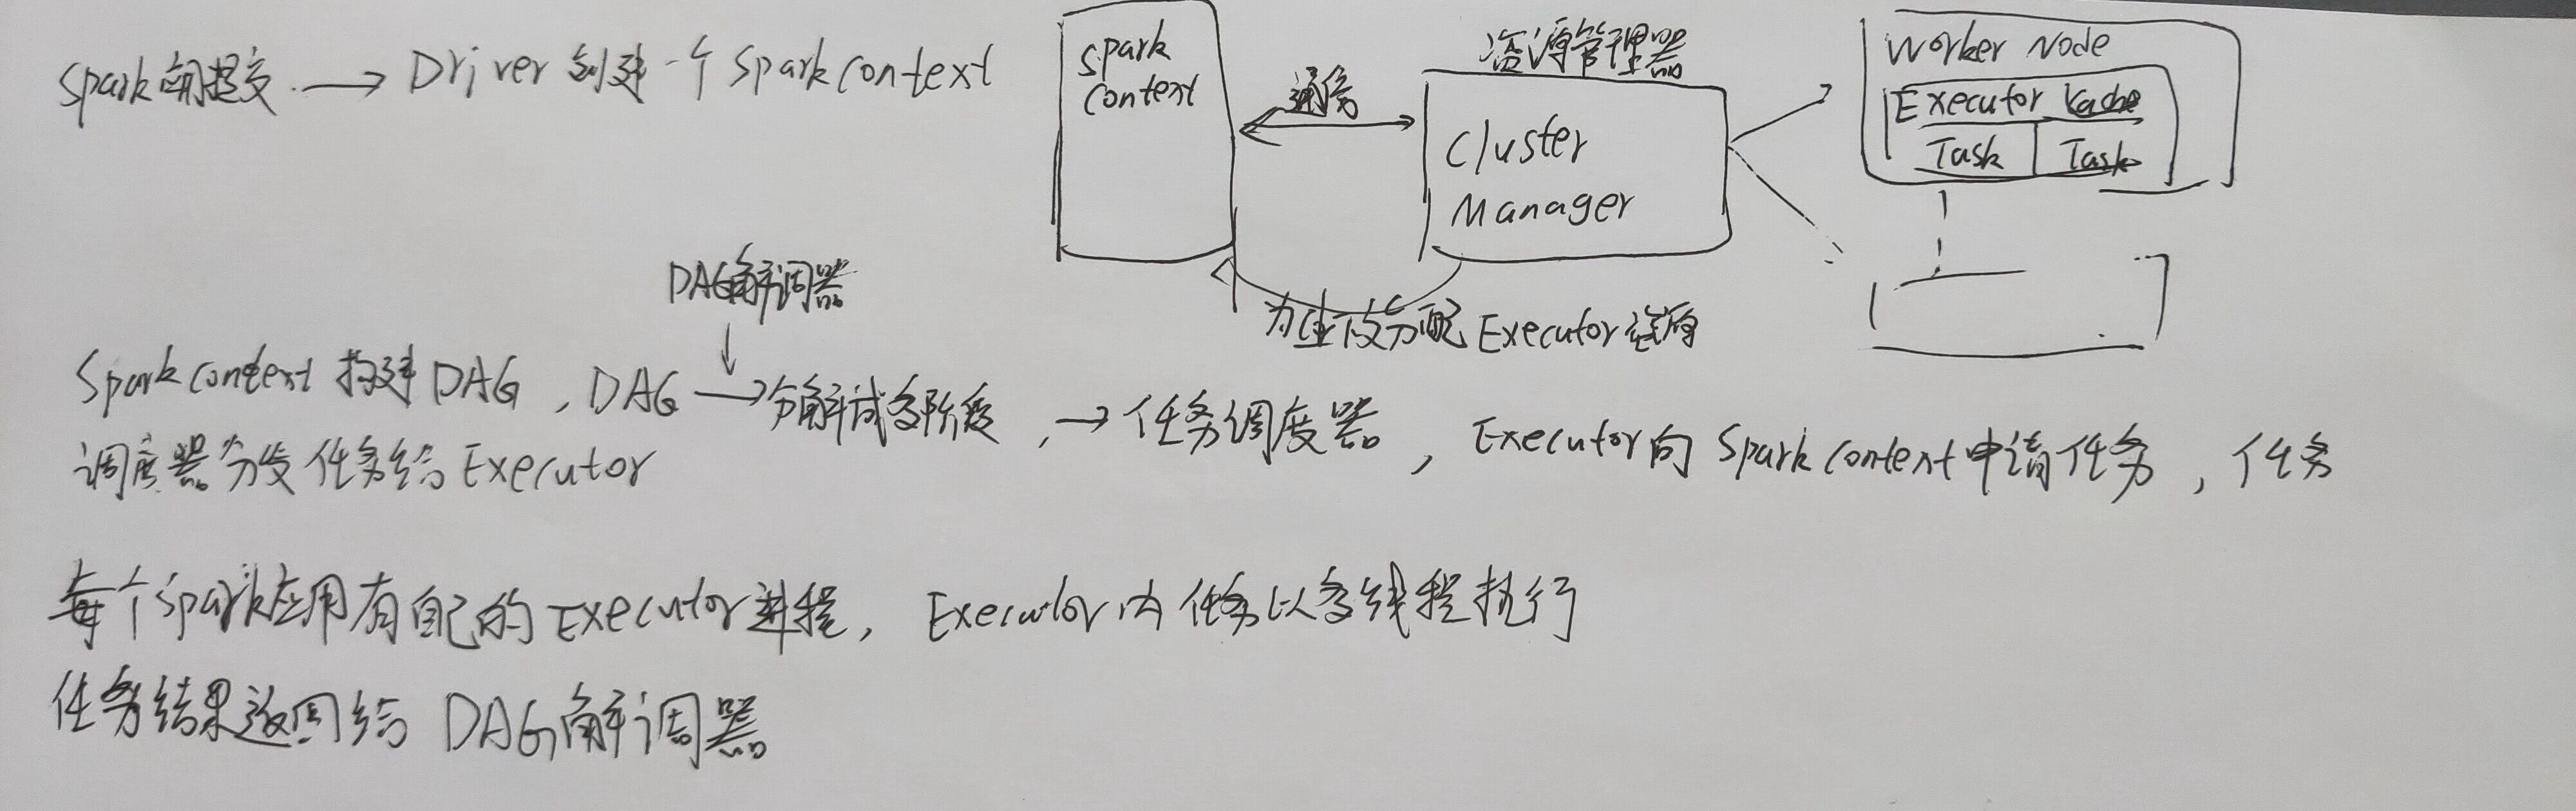 Spark应用提交 → Driver 创建一个 SparkContext
Spark
Context
通信
资源管理器
Cluster
Manager
Worker Node
Executor
Task Task
为 分配 Executor 资源
DAG解调器
SparkContext 构建 DAG , DAG → 分解成多阶段 , → 任务调度器 , Executor向 SparkContext申请任务 , 任务
调度器分发任务给 Executor
每个Spark应用有自己的 Executor进程, Executor内任务以多线程执行
任务结果返回给 DAG解调器